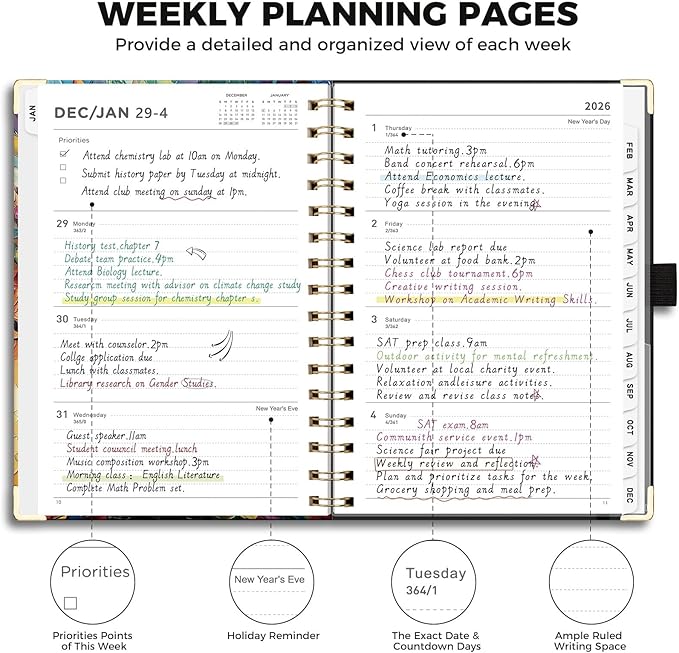 WEEKLY PLANNING PAGES
Provide a detailed and organized view of each week
JAN
DEC/JAN 29-4
DECEMBER
JANUARY
Priorities
Attend chemistry lab at 10am on Monday.
Submit history paper by Tuesday at midnight.
Attend club meeting on sunday at 1pm.
29 Monday
363/2
History test.chapter 7
Debate team practice.4pm
Attend Biology lecture.
Research meeting with advisor on climate change study
Study group session for chemistry chapter s.
30 Tuesday
364/1
Meet with counselor.2pm
Collge application due
Lunch with classmates.
Library research on Gender Studies.
31 Wednesday
365/0
New Year's Eve
Guest speaker.11am
Student couuncil meeting.lunch
Music composition workshop.3pm
Morning class : English Literature
Complete Math Problem set.
10
2026
New Year's Day
1 Thursday
1/364
Math tutoring.3pm
Band concert rehearsal.6pm
Attend Economics lecture.
Coffee break with classmates.
Yoga session in the evening.
2 Friday
2/363
Science lab report due
Volunteer at food bank.2pm
Chess club tournament.6pm
Creative writing session.
Workshop on Academic Writing Skills.
3 Saturday
3/362
SAT prep class.9am
Outdoor activity for mental refreshment.
Volunteer at local charity event.
Relaxation andleisure activities.
Review and revise class notes.
4 Sunday
4/361
SAT exam.8am
Community service event.1pm
Science fair project due
Weekly review and reflection.
Plan and prioritize tasks for the week.
Grocery shopping and meal prep.
11
FEB
MAR
APR
MAY
JUN
JUL
AUG
SEP
OCT
NOV
DEC
Priorities
New Year's Eve
Tuesday
364/1
Priorities Points
of This Week
Holiday Reminder
The Exact Date &
Countdown Days
Ample Ruled
Writing Space